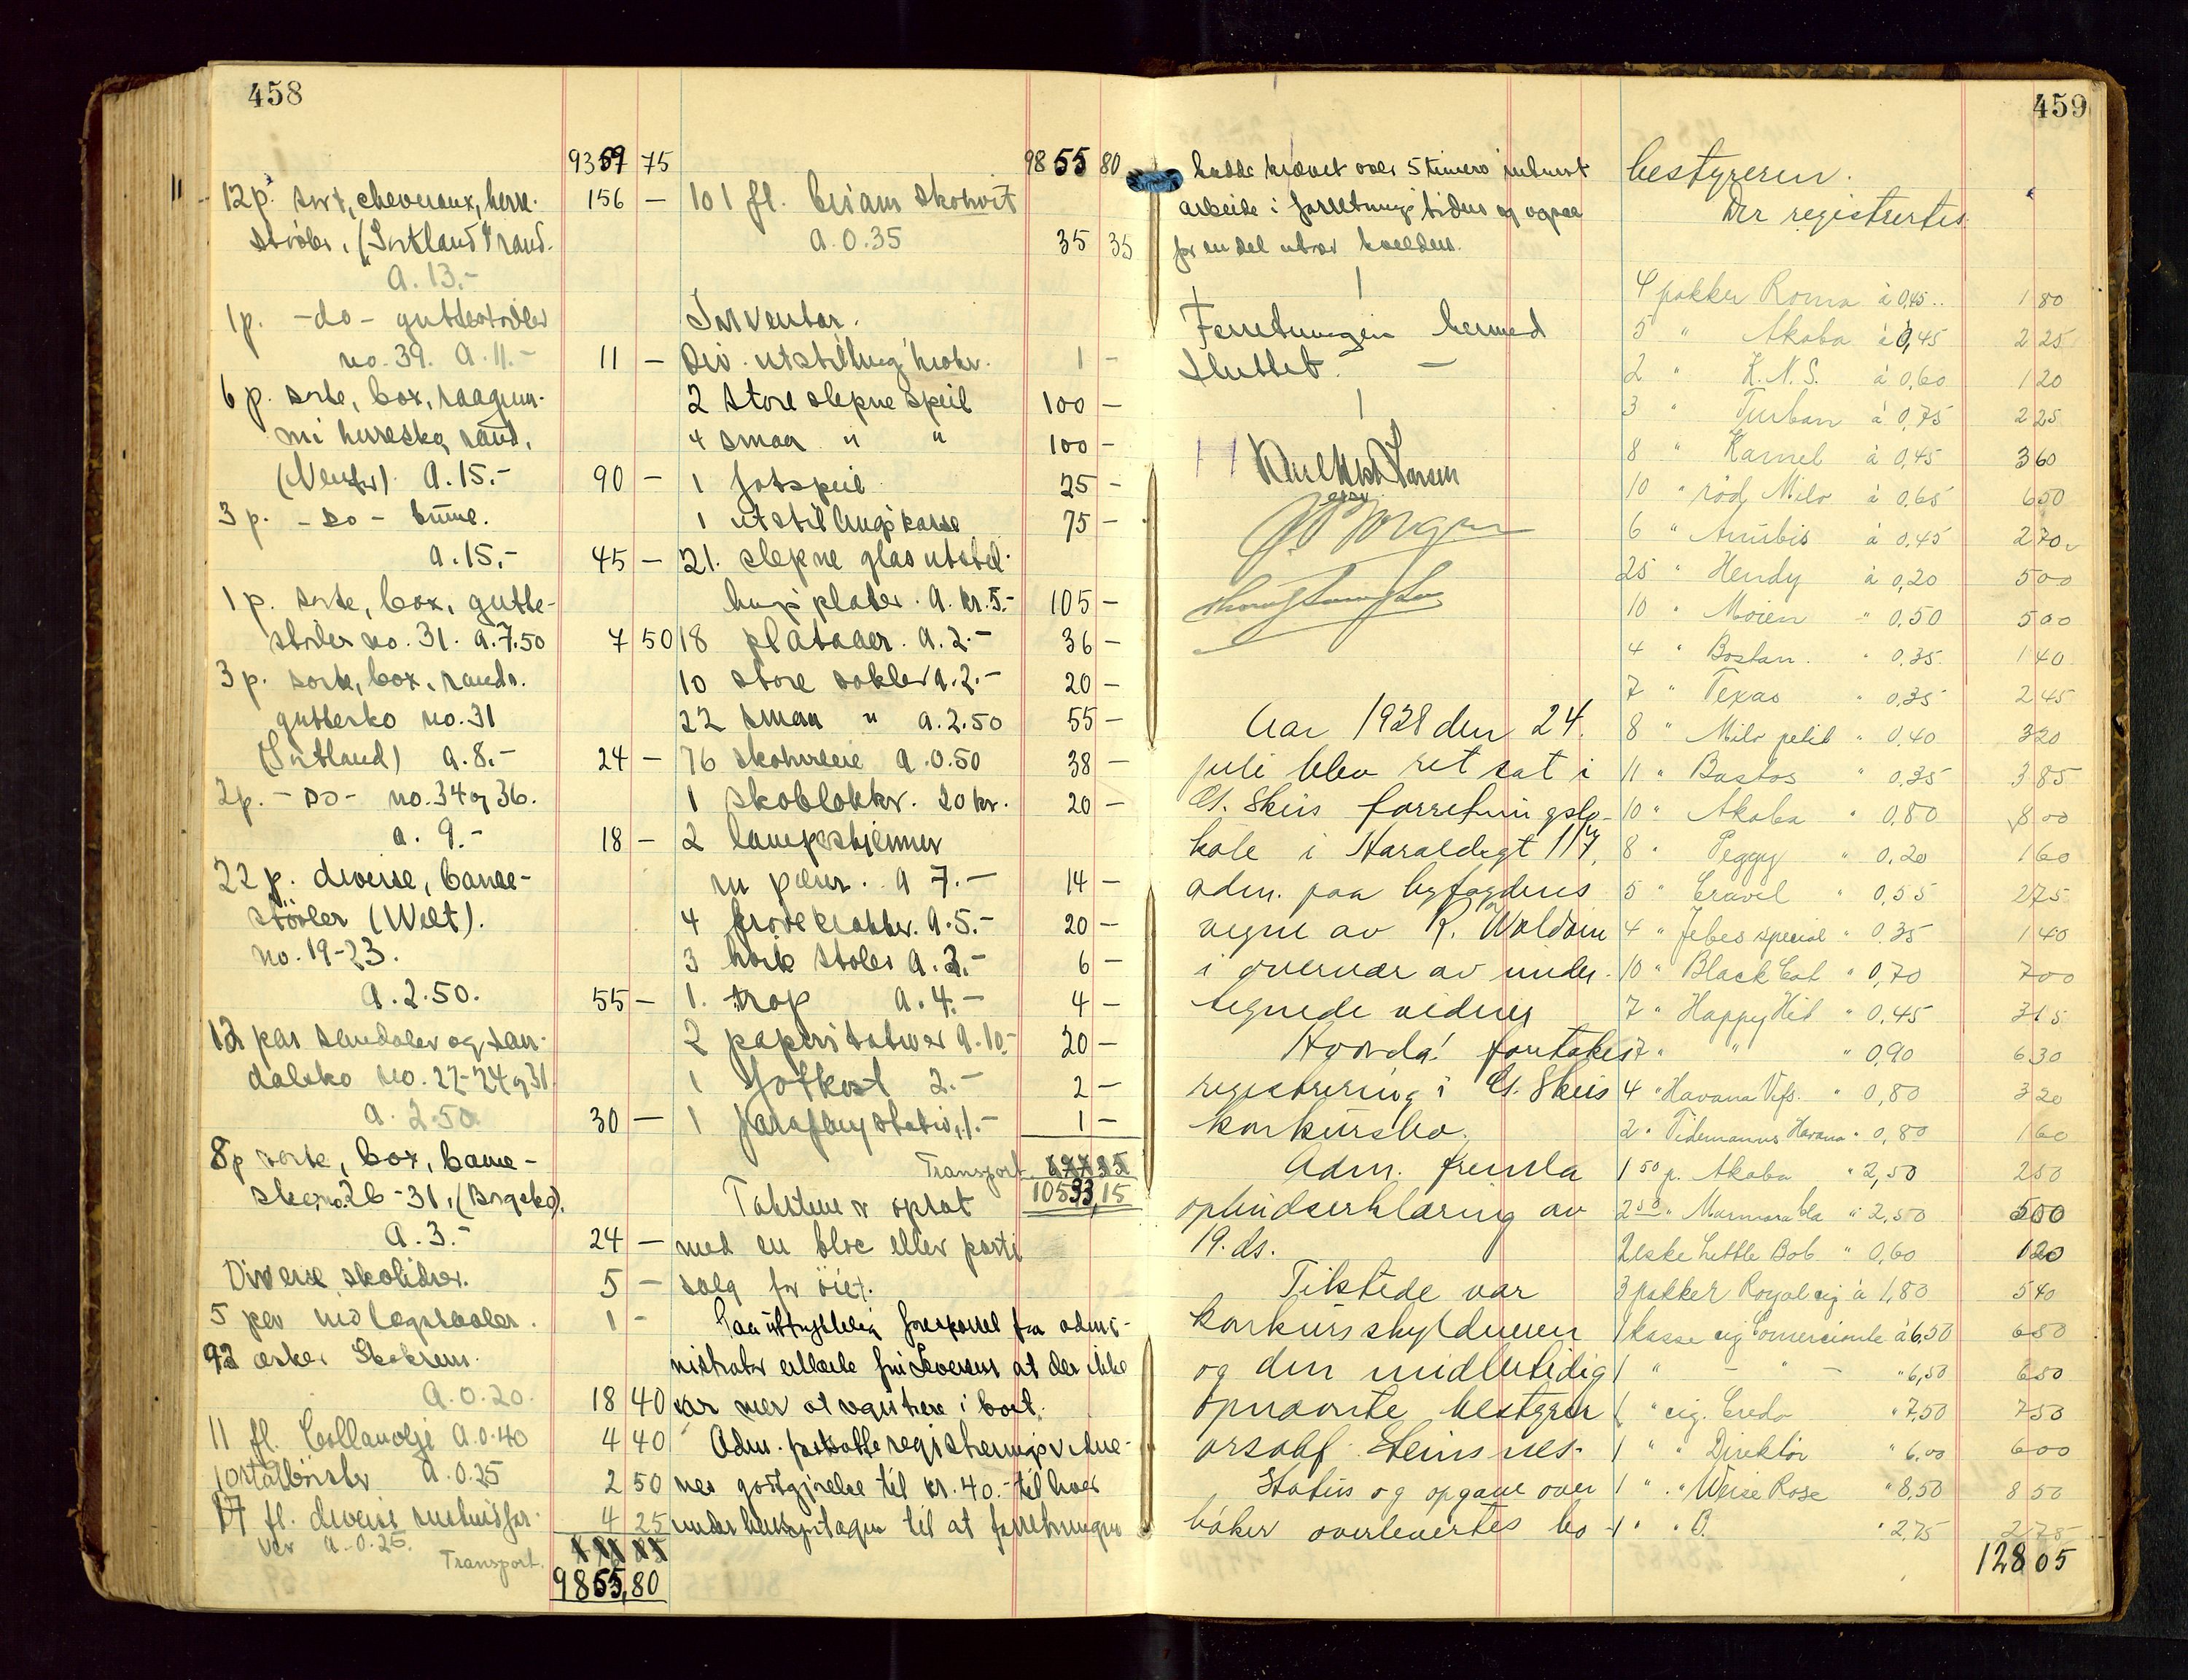 458
9359 75
12 p. sort, cheveraux, herre-
støvler, (Sortland) rand.
a. 13.- 156 -
1 p. -do- guttestøvler
no. 39. a. 11.- 11 -
6 p. sorte, box, raagum-
mi herresko, rand.
a. 15.- 90 -
3 p. -do- brune.
a. 15.- 45 -
1 p. sorte, box, gutte-
støvler no. 31. a. 7.50 7 50
3 p. sorte, box, rands.
guttesko no. 31
(Sortland) a. 8.- 24 -
2 p. -do- no. 34 og 36.
a. 9.- 18 -
22 p. diverse, barne-
støvler (Welt).
no. 19-23.
a. 2.50. 55 -
12 par sandaler og san-
dalsko no. 22-24 og 31
a. 2.50 30 -
8 p sorte, box, barne-
sko, no. 26-31, (Borgsko).
a. 3.- 24 -
Diverse skolidser. 5 -
5 par 1 -
92 æsker Skokrem.
a. 0.20. 18 40
11 fl. Collanolje a. 0.40 4 40
10 staalbørster a. 0.25 2 50
17 fl. diverse
a. 0.25. 4 25
Transport.
9855,80
9855 80
101 fl. skohvit
a. 0.35 35 35
Inventar.
Div. utstilling 1 -
2 store slepne speil 100 -
4 smaa " " 100 -
1 fotspeil 25 -
1 utstillingskasse 75 -
21. slepne glas utstil-
lings plater. a. kr. 5.- 105 -
18 plataaer. a. 2.- 36 -
10 store sokler a. 2.- 20 -
22 smaa " a. 2.50 55 -
76 a. 0.50 38 -
1 skoblokker. 20 kr. 20 -
2 lampeskjermer
m pærer. a 7.- 14 -
4 prøvekrakker. a. 5.- 20 -
3 hvite stoler a. 2.- 6 -
1. trap a. 4.- 4 -
2 papirstativer a. 10.- 20 -
1 2.- 2 -
1 1.- 1 -
Transport
10593,15
Taksten er opsat
med en bloc eller parti
salg for øiet.
Paa uttrykkelig forespørsel fra admi-
nistrator erklærte frk Seversen at der ikke
var mer at registrere i boet.
Adm. fastsatte registreringsvidne-
nes godtgjørelse til kr. 40.- til hver
under hensyntagen til at forretningen
459
hadde krævet over 5 timers intenst
arbeide i forretningstiden og ogsaa
for en del utover kvelden.
Forretningen hermed
sluttet.
Aar 1928 den 24.
juli blev ret sat i
forretningslo-
kale i Haraldsgt 117,
adm. paa byfogdens
vegne av R. Waldum
i overvær av under-
tegnede vidner
Hvorda! foretokes
registrering i
konkursbo.
Adm. fremla
opbudserklæring av
19. ds.
Tilstede var
konkursskyldneren
og den midlertidig
opnævnte bestyrer
orsakf. Steinsnes.
Status og opgave over
bøker overlevertes bo-
bestyreren.
Der registrertes
4 pakker Roma à 0,45.. 1 80
5 " Akaba à 0,45 2 25
2 " H.N.S. à 0,60 1 20
3 " Turban à 0,75 2 25
8 " Kamel à 0,45 3 60
10 " rød Milo à 0,65 6 50
6 " Anubis à 0,45 2 70
25 " Hendy à 0,20 5 00
10 " Moien " 0,50 5 00
4 " Bostan. " 0,35 1 40
7 " Texas " 0,35 2 45
8 " Milo petit " 0,40 3 20
11 " Bastos " 0,35 3 85
10 " Akaba " 0,80 8 00
8 " Peggy " 0,20 1 60
5 " Cravel " 0,55 2 75
4 " Jebes special " 0,35 1 40
10 " Black Cat " 0,70 7 00
7 " Happy Hit " 0,45 3 15
7 " " " 0,90 6 30
4 " Havana Vifs. " 0,80 3 20
2 " Tidemanns Havana " 0,80 1 60
1 50 p. Akaba " 2,50 2 50
2 50 " Marmara bla " 2,50 5 00
2 eske Little Bob " 0,60 1 20
3 pakker Royal cig à 1,80 5 40
1 kasse cig Comerciante à 6,50 6 50
1 " - " - " 6,50 6 50
1 " cig. Credo " 7,50 7 50
1 " " Direktör " 6,00 6 00
1 " " Weise Rose " 8,50 8 50
1 " " B. " 2,75 2 75
128 05